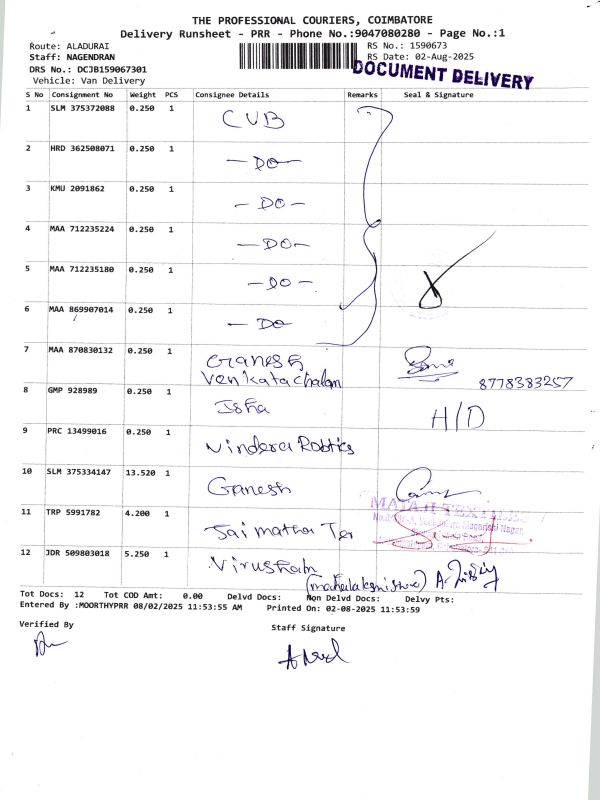 THE PROFESSIONAL COURIERS, COIMBATORE
Delivery Runsheet - PRR - Phone No.:9047080280 - Page No.:1
Route: ALADURAI RS No.: 1590673
Staff: NAGENDRAN RS Date: 02-Aug-2025
DRS No.: DCJB159067301
Vehicle: Van Delivery
DOCUMENT DELIVERY
S No Consignment No Weight PCS Consignee Details Remarks Seal & Signature
1 SLM 375372088 0.250 1 CUB
2 HRD 362508071 0.250 1 —DO—
3 KMU 2091862 0.250 1 —DO—
4 MAA 712235224 0.250 1 —DO—
5 MAA 712235180 0.250 1 —DO—
6 MAA 869907014 0.250 1 —DO—
7 MAA 870830132 0.250 1 Ganesh
Venkatachalam 8778383257
8 GMP 928989 0.250 1 Isha H/D
9 PRC 13499016 0.250 1 Nindera Robtics
10 SLM 375334147 13.520 1 Ganesh
11 TRP 5991782 4.200 1 Jai matha Tex
MATAJI
Maharishi Nagar,
12 JDR 509803018 5.250 1 Virusham
Tot Docs: 12 Tot COD Amt: 0.00 Delvd Docs: Non Delvd Docs: Delvy Pts:
Entered By :MOORTHYPRR 08/02/2025 11:53:55 AM Printed On: 02-08-2025 11:53:59
Verified By Staff Signature